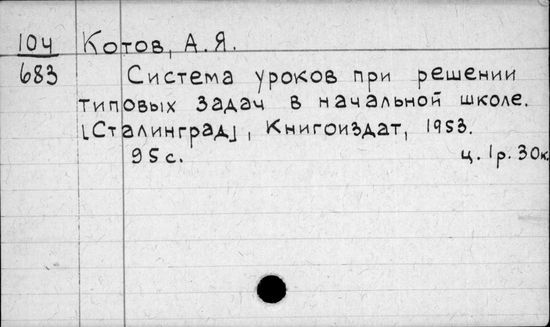 104 Котов, А.Я.
683 Система уроков при решении
типовых задач в начальной школе.
[Сталинград], Книгоиздат, 1953.
95 с. ц. 1р. 30к.